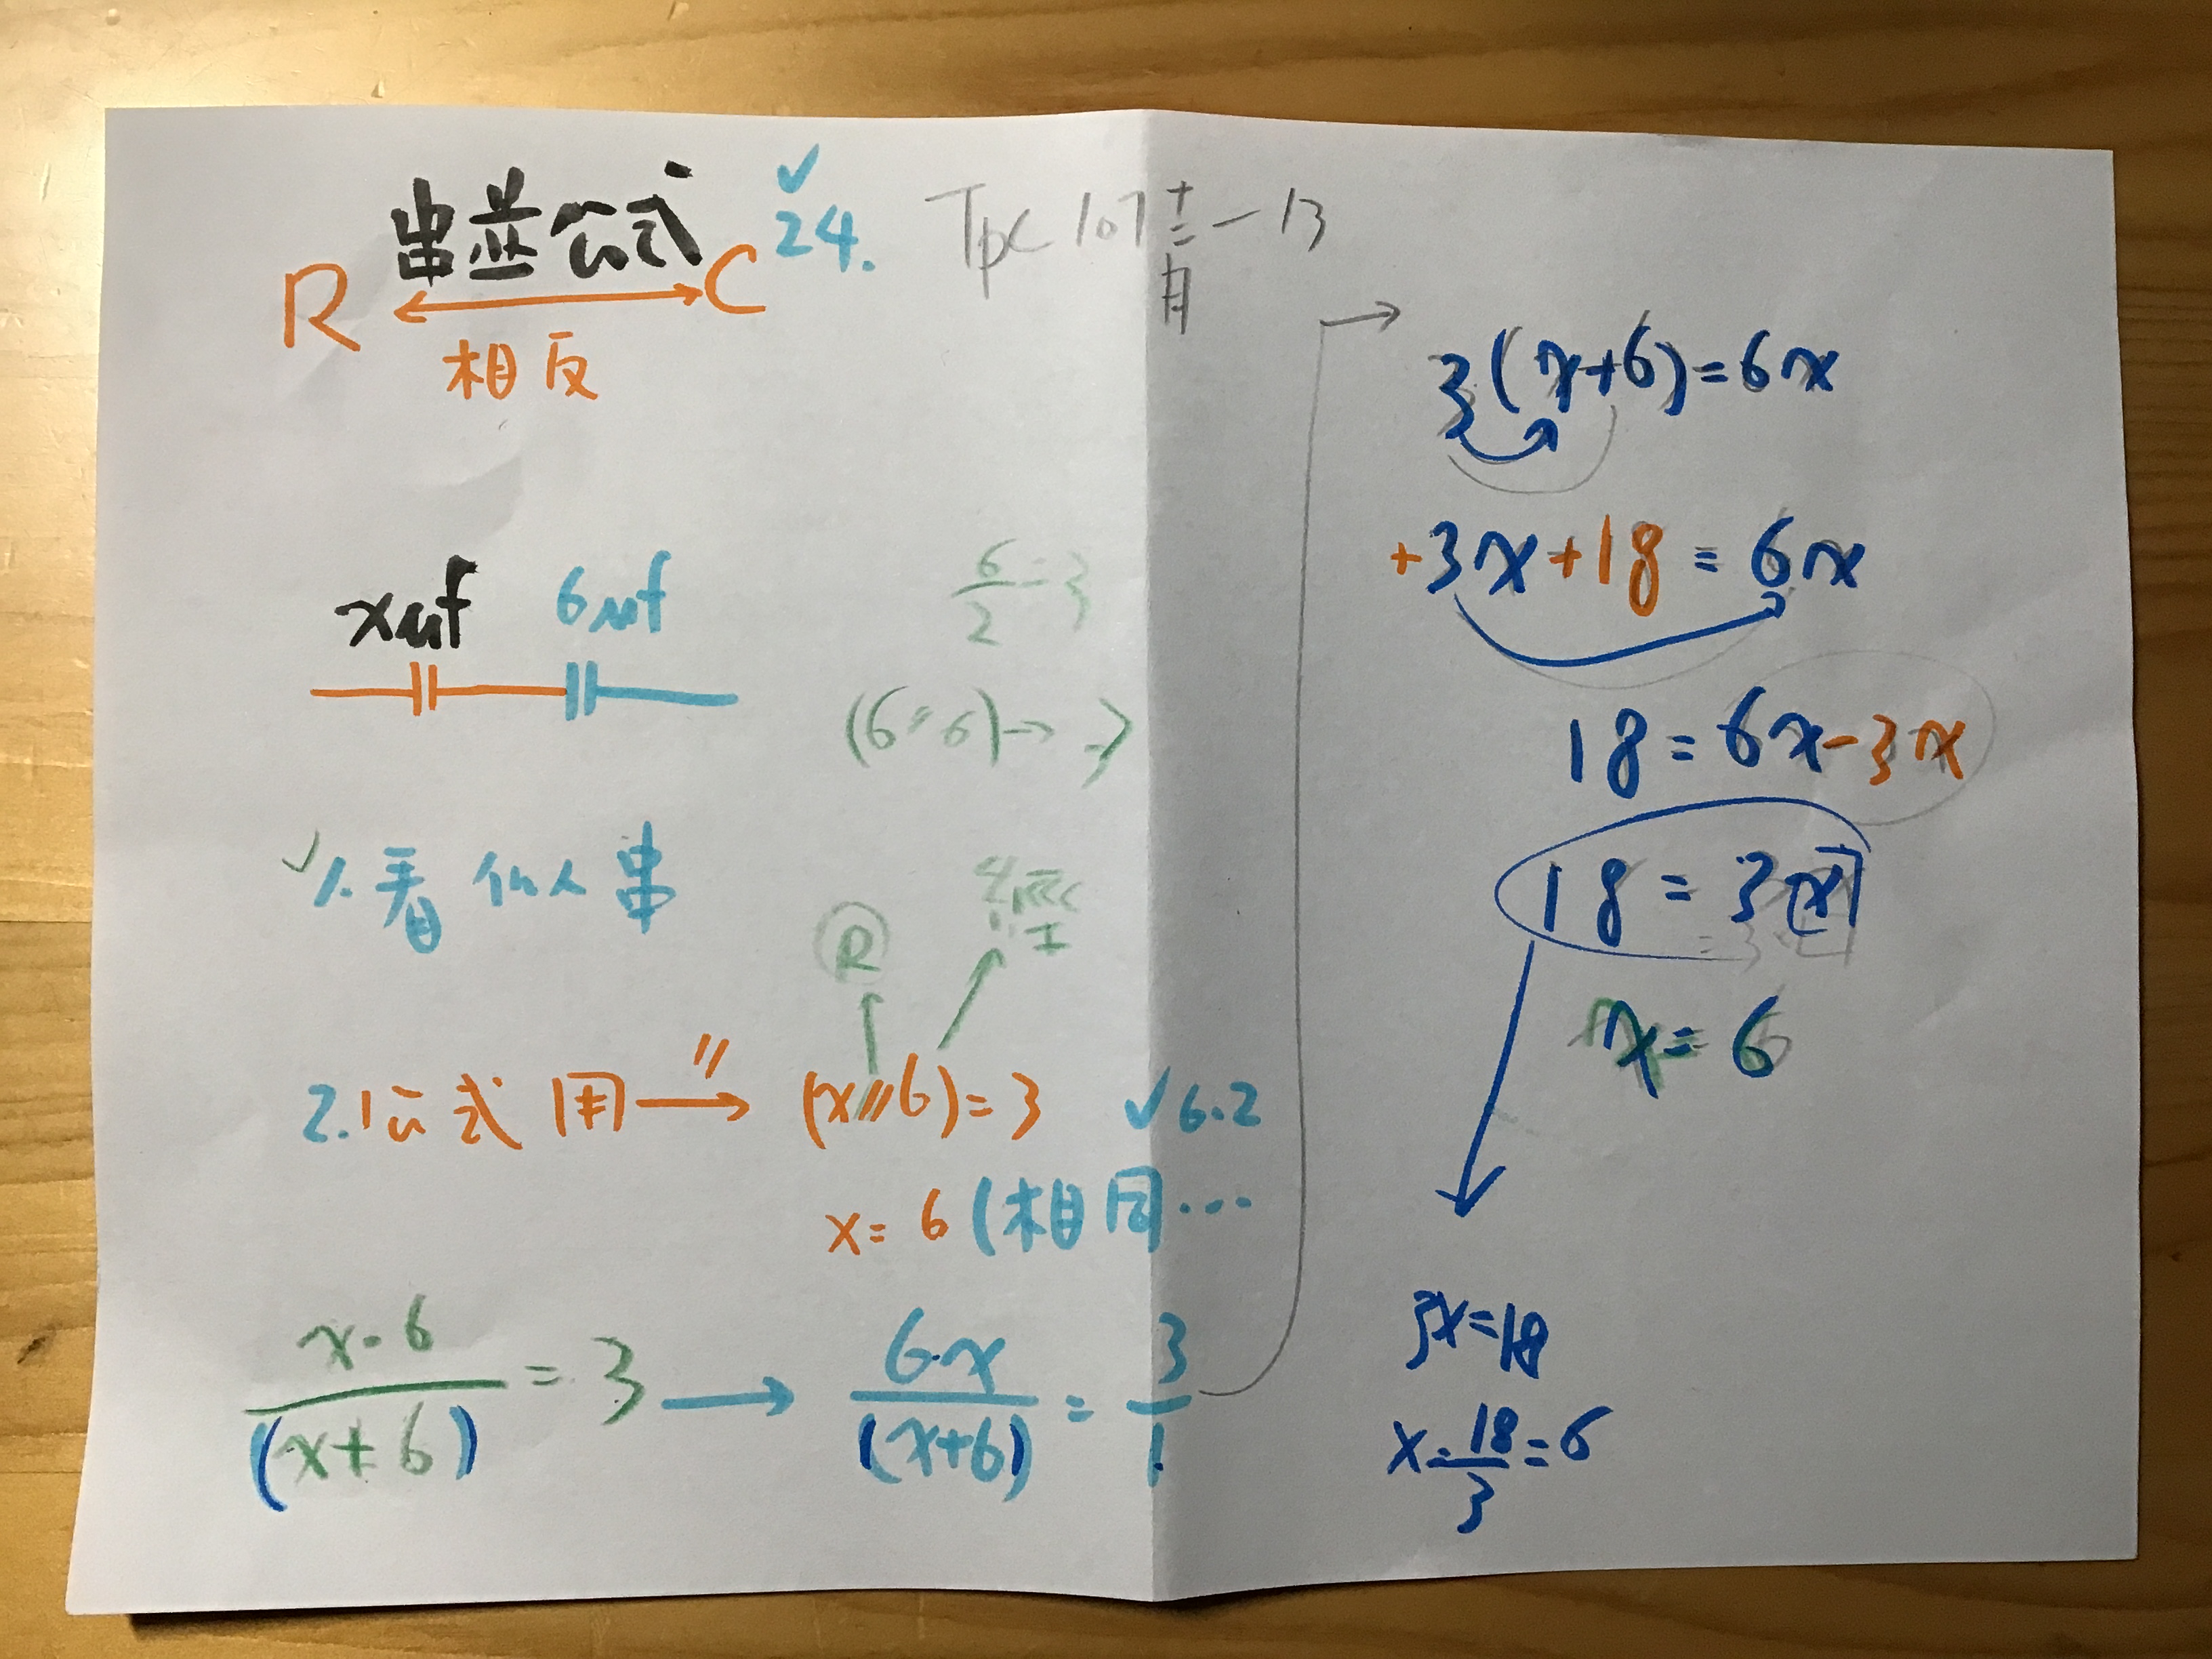 串並公式
R ⟷ C
相反
✓
24.
Tpc 107 十二月 - 13
xuf 6uf
6/2=3
(6//6)→3
✓1.看似串
R
2.公式用 // → (x//6)=3 ✓6.2
x=6(相同…
x·6/(x+6)=3 → 6·x/(x+6)=3/1
→ 3(x+6)=6x
+3x+18=6x
18=6x-3x
18=3x
x=6
3x=18
x=18/3=6